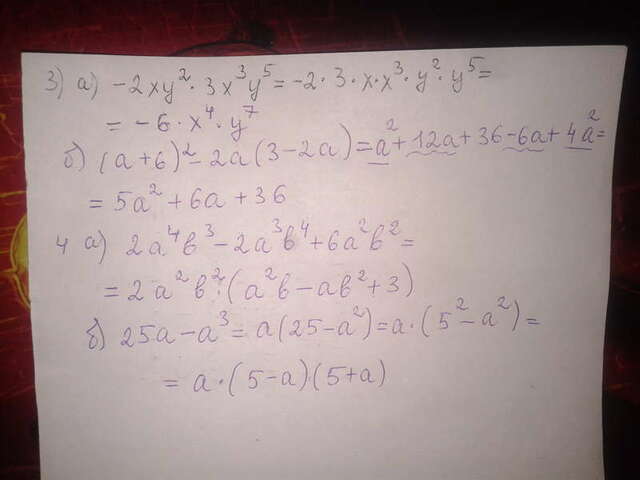 3) а) -2xy²·3x³y⁵=-2·3·x·x³·y²·y⁵=
=-6·x⁴·y⁷
б) (a+6)²-2a(3-2a)=a²+12a+36-6a+4a²=
=5a²+6a+36
4 а) 2a⁴b³-2a³b⁴+6a²b²=
=2a²b²·(a²b-ab²+3)
б) 25a-a³=a(25-a²)=a·(5²-a²)=
=a·(5-a)·(5+a)